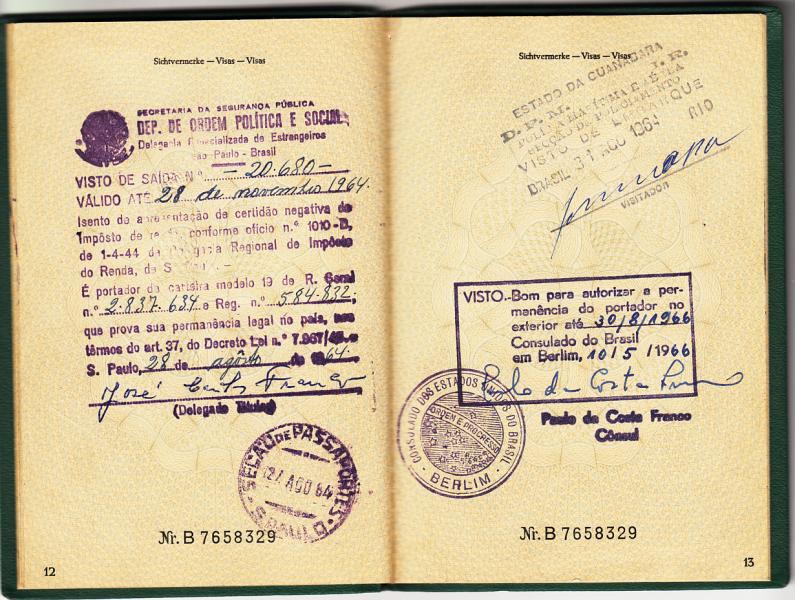 Sichtvermerke — Visas — Visas
SECRETARIA DA SEGURANÇA PÚBLICA
DEP. DE ORDEM POLÍTICA E SOCIAL
Delegacia Especializada de Estrangeiros
São Paulo - Brasil
VISTO DE SAÍDA N.º - 20.680 -
VÁLIDO ATÉ 28 de novembro 1964.
Isento da apresentação de certidão negativa do
Impôsto de renda conforme ofício n.º 1010-D,
de 1-4-44 da Delegacia Regional de Impôsto
do Renda, de S.
É portador da carteira modelo 19 de R. Geral
n.º 2.837.634 e Reg. n.º 584.832,
que prova sua permanência legal no país, nos
têrmos do art. 37, do Decreto Lei n.º 7.967/45.-
S. Paulo, 28 de agôsto de 1964.
José Carlos Franco
(Delegado Titular)
SECÇÃO DE PASSAPORTES
27 AGO 64
S. PAULO
Nr. B 7658329
12
Sichtvermerke — Visas — Visas
ESTADO DA GUANABARA
D. P. M. I. R.
POLÍCIA MARÍTIMA E AÉREA
VISTO DE EMBARQUE
BRASIL 31 AGO 1964 RIO
VISITADOR
VISTO.-Bom para autorizar a per-
manência do portador no
exterior até 30/8/1966
Consulado do Brasil
em Berlim, 10/5/1966
Paulo da Costa Franco
Cônsul
CONSULADO DOS ESTADOS UNIDOS DO BRASIL
ORDEM E PROGRESSO
BERLIM
Nr. B 7658329
13